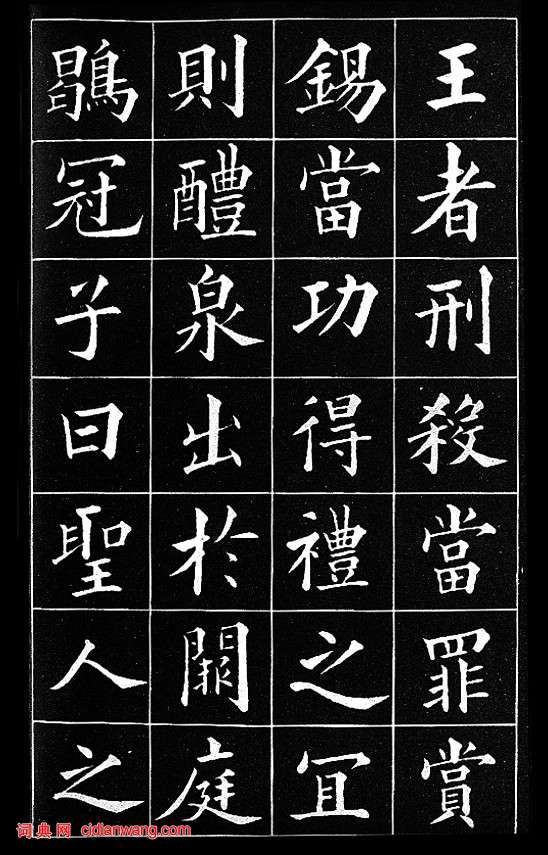 王者刑殺當罪賞
錫當功得禮之冝
則醴泉出於闕庭
鶡冠子曰聖人之
词典网 cidianwang.com